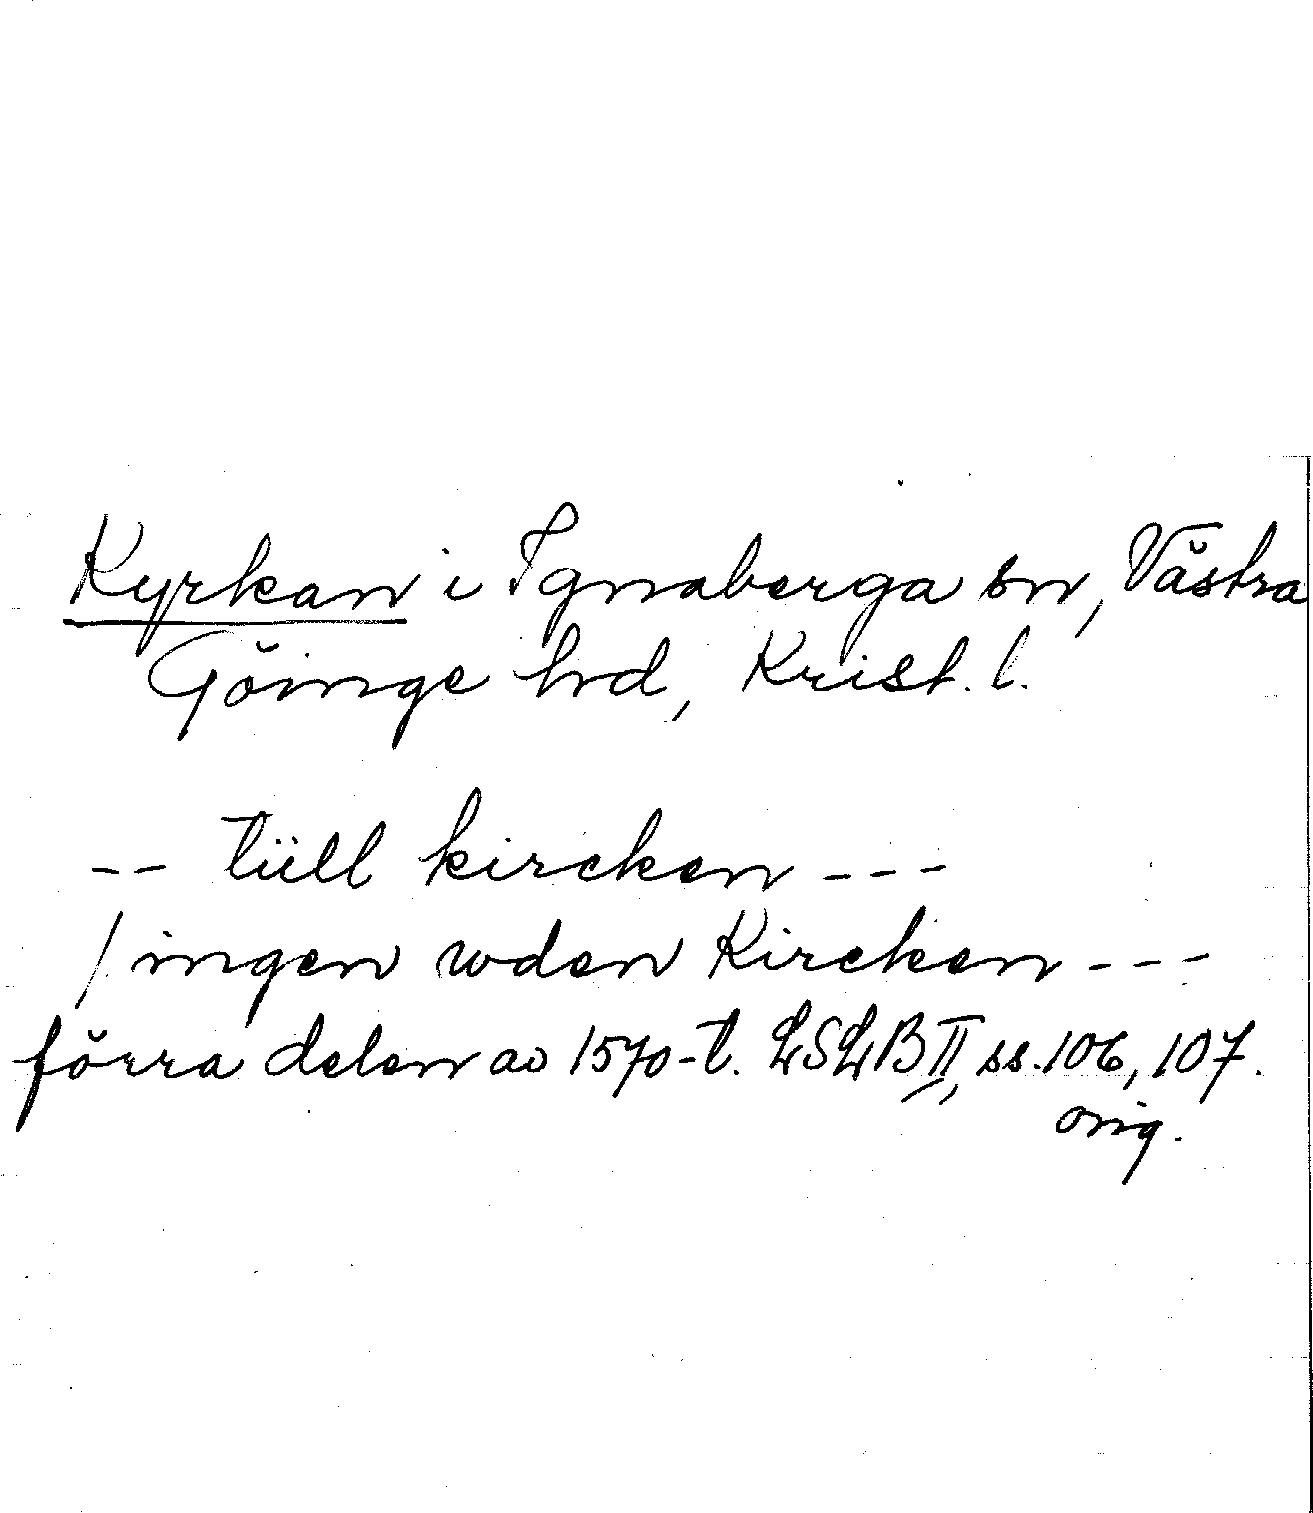 Kyrkan i Ignaberga sn, Västra
Göinge hrd, Krist. l.
-- tüll kircken ---
/ ingen wden Kircken ---
förra delen av 1570-t. LSLB II, ss. 106, 107.
orig.